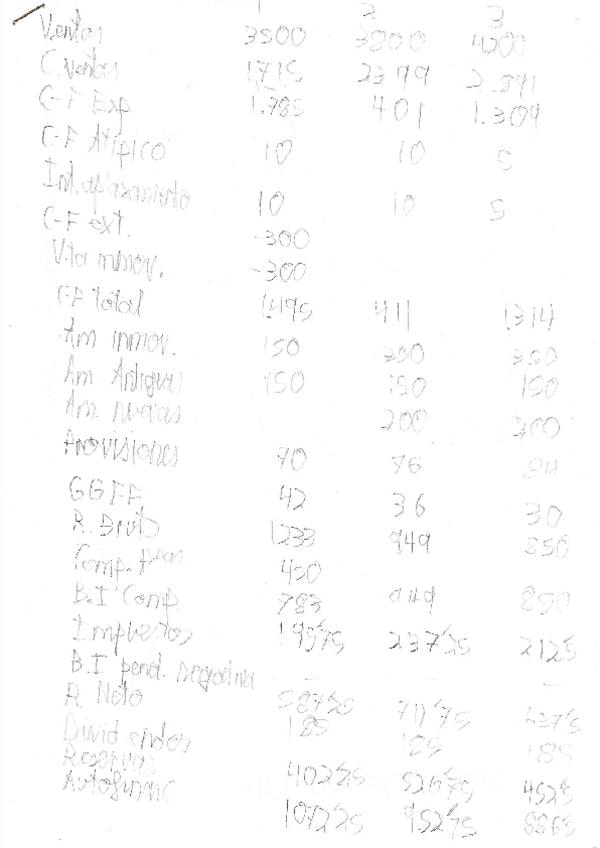 1 2 3
Ventas 3500 3800 4200
C.ventas 1.715 2399 2.891
C-F Exp 1.785 401 1.309
C-F Atípico 10 10 5
Int. aplazamiento 10 10 5
C-F ext. -300
Vta inmov. -300
CF total 1.495 411 1314
Am inmov. 150 350 350
Am. Antiguas 150 150 150
Am. nuevas 200 200
Provisiones 70 76 84
GGFF 42 36 30
R. Bruto 1233 949 850
Comp. 450
B.I Comp 783 949 850
Impuestos 195'75 237'25 212'5
B.I pend. negativa - - -
R. Neto 587'25 711'75 637'5
Dividendos 185 185 185
Reservas 402'25 526'75 452'5
Autofinanc 1072'25 952'75 886'5